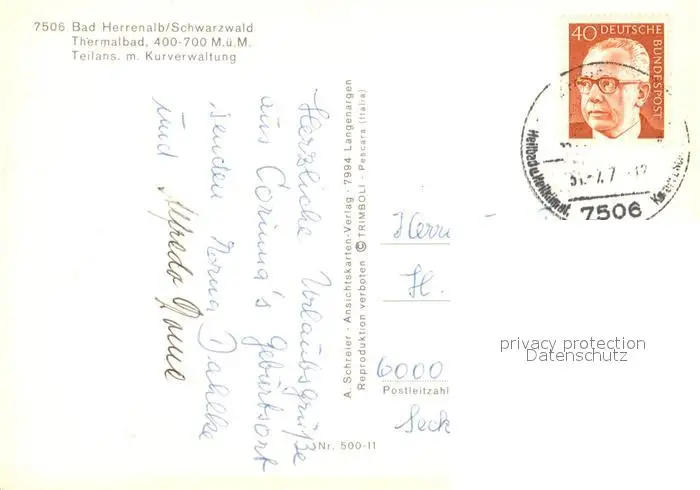 7506 Bad Herrenalb/Schwarzwald
Thermalbad, 400-700 M.ü.M.
Teilans. m. Kurverwaltung
40 DEUTSCHE
BUNDESPOST
7506
Herzliche Urlaubsgrüße
aus Corinna's Geburtsort
senden Dahlke
und Alfredo
A. Schreier - Ansichtskarten-Verlag - 7994 Langenargen
Reproduktion verboten © TRIMBOLI - Pescara (Italia)
Herrn
H.
6000
Postleitzahl
Seck
Nr. 500-11
privacy protection
Datenschutz